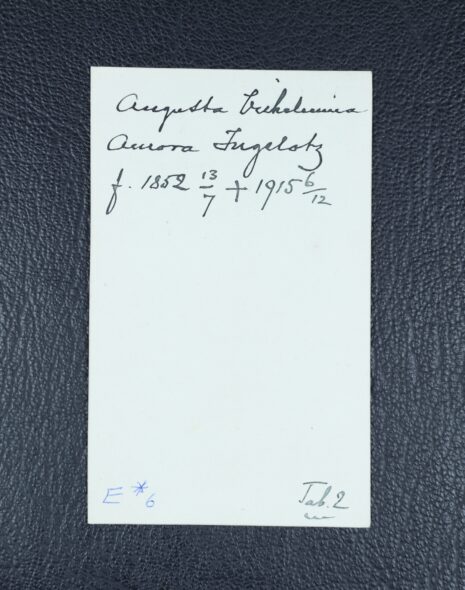 Augusta Vilhelmina
Aurora Ingelotz
f. 1852 13/7 + 1915 6/12
E * 6
Tab. 2